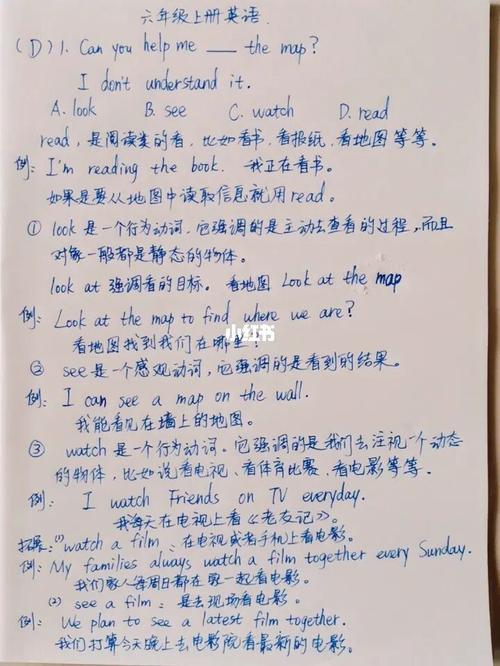 六年级上册英语.
(D) 1. Can you help me ___ the map?
I don't understand it.
A. look B. see C. watch D. read
read, 是阅读类的看, 比如看书, 看报纸, 看地图等等。
例: I'm reading the book. 我正在看书。
如果是要从地图中读取信息就用read。
① look 是一个行为动词, 它强调的是主动去查看的过程, 而且
对象一般都是静态的物体。
look at 强调看的目标。 看地图 Look at the map
例: Look at the map to find where we are?
看地图找到我们在哪里?
小红书
② see是一个感观动词, 它强调的是看到的结果。
例: I can see a map on the wall.
我能看见在墙上的地图。
③ watch 是一个行为动词。它强调的是我们去注视一个动态
的物体, 比如说看电视、看体育比赛、看电影等等。
例: I watch Friends on TV everyday.
我每天在电视上看《老友记》。
拓展: (1) watch a film: 在电视或者手机上看电影。
例: My families always watch a film together every Sunday.
我们家人每周日都在家一起看电影。
(2) see a film: 是去现场看电影。
例: We plan to see a latest film together.
我们打算今天晚上去电影院看最新的电影。